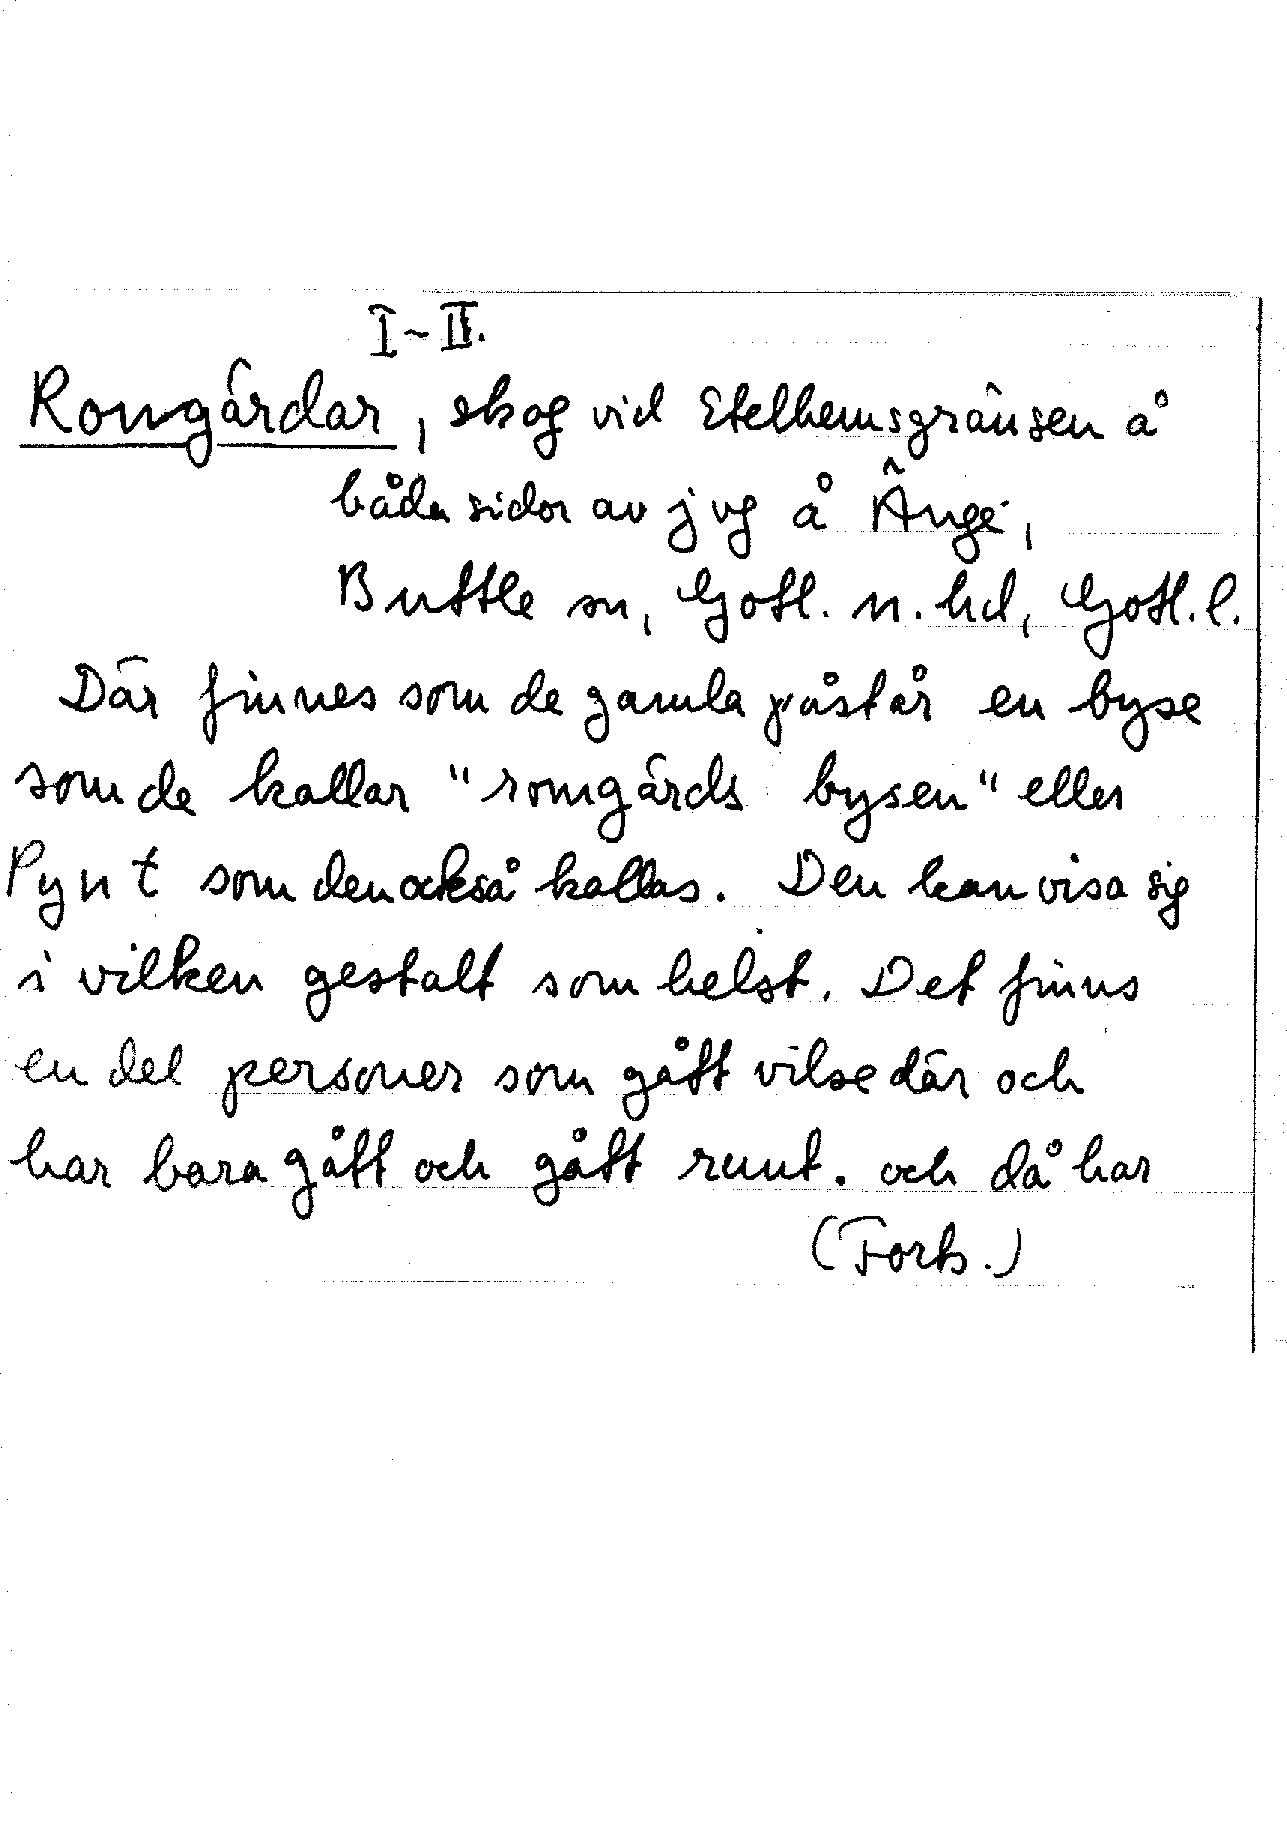 I-II.
Romgärdar, skog vid Etelhemsgränsen å
båda sidor av jvg å Änge,
Buttle sn, Gotl. n. hd, Gotl. l.
Där finnes som de gamla påstår en byse
som de kallar "romgärds bysen" eller
Pynt som den också kallas. Den kan visa sig
i vilken gestalt som helst. Det finns
en del personer som gått vilse där och
har bara gått och gått runt. och då har
(Forts.)